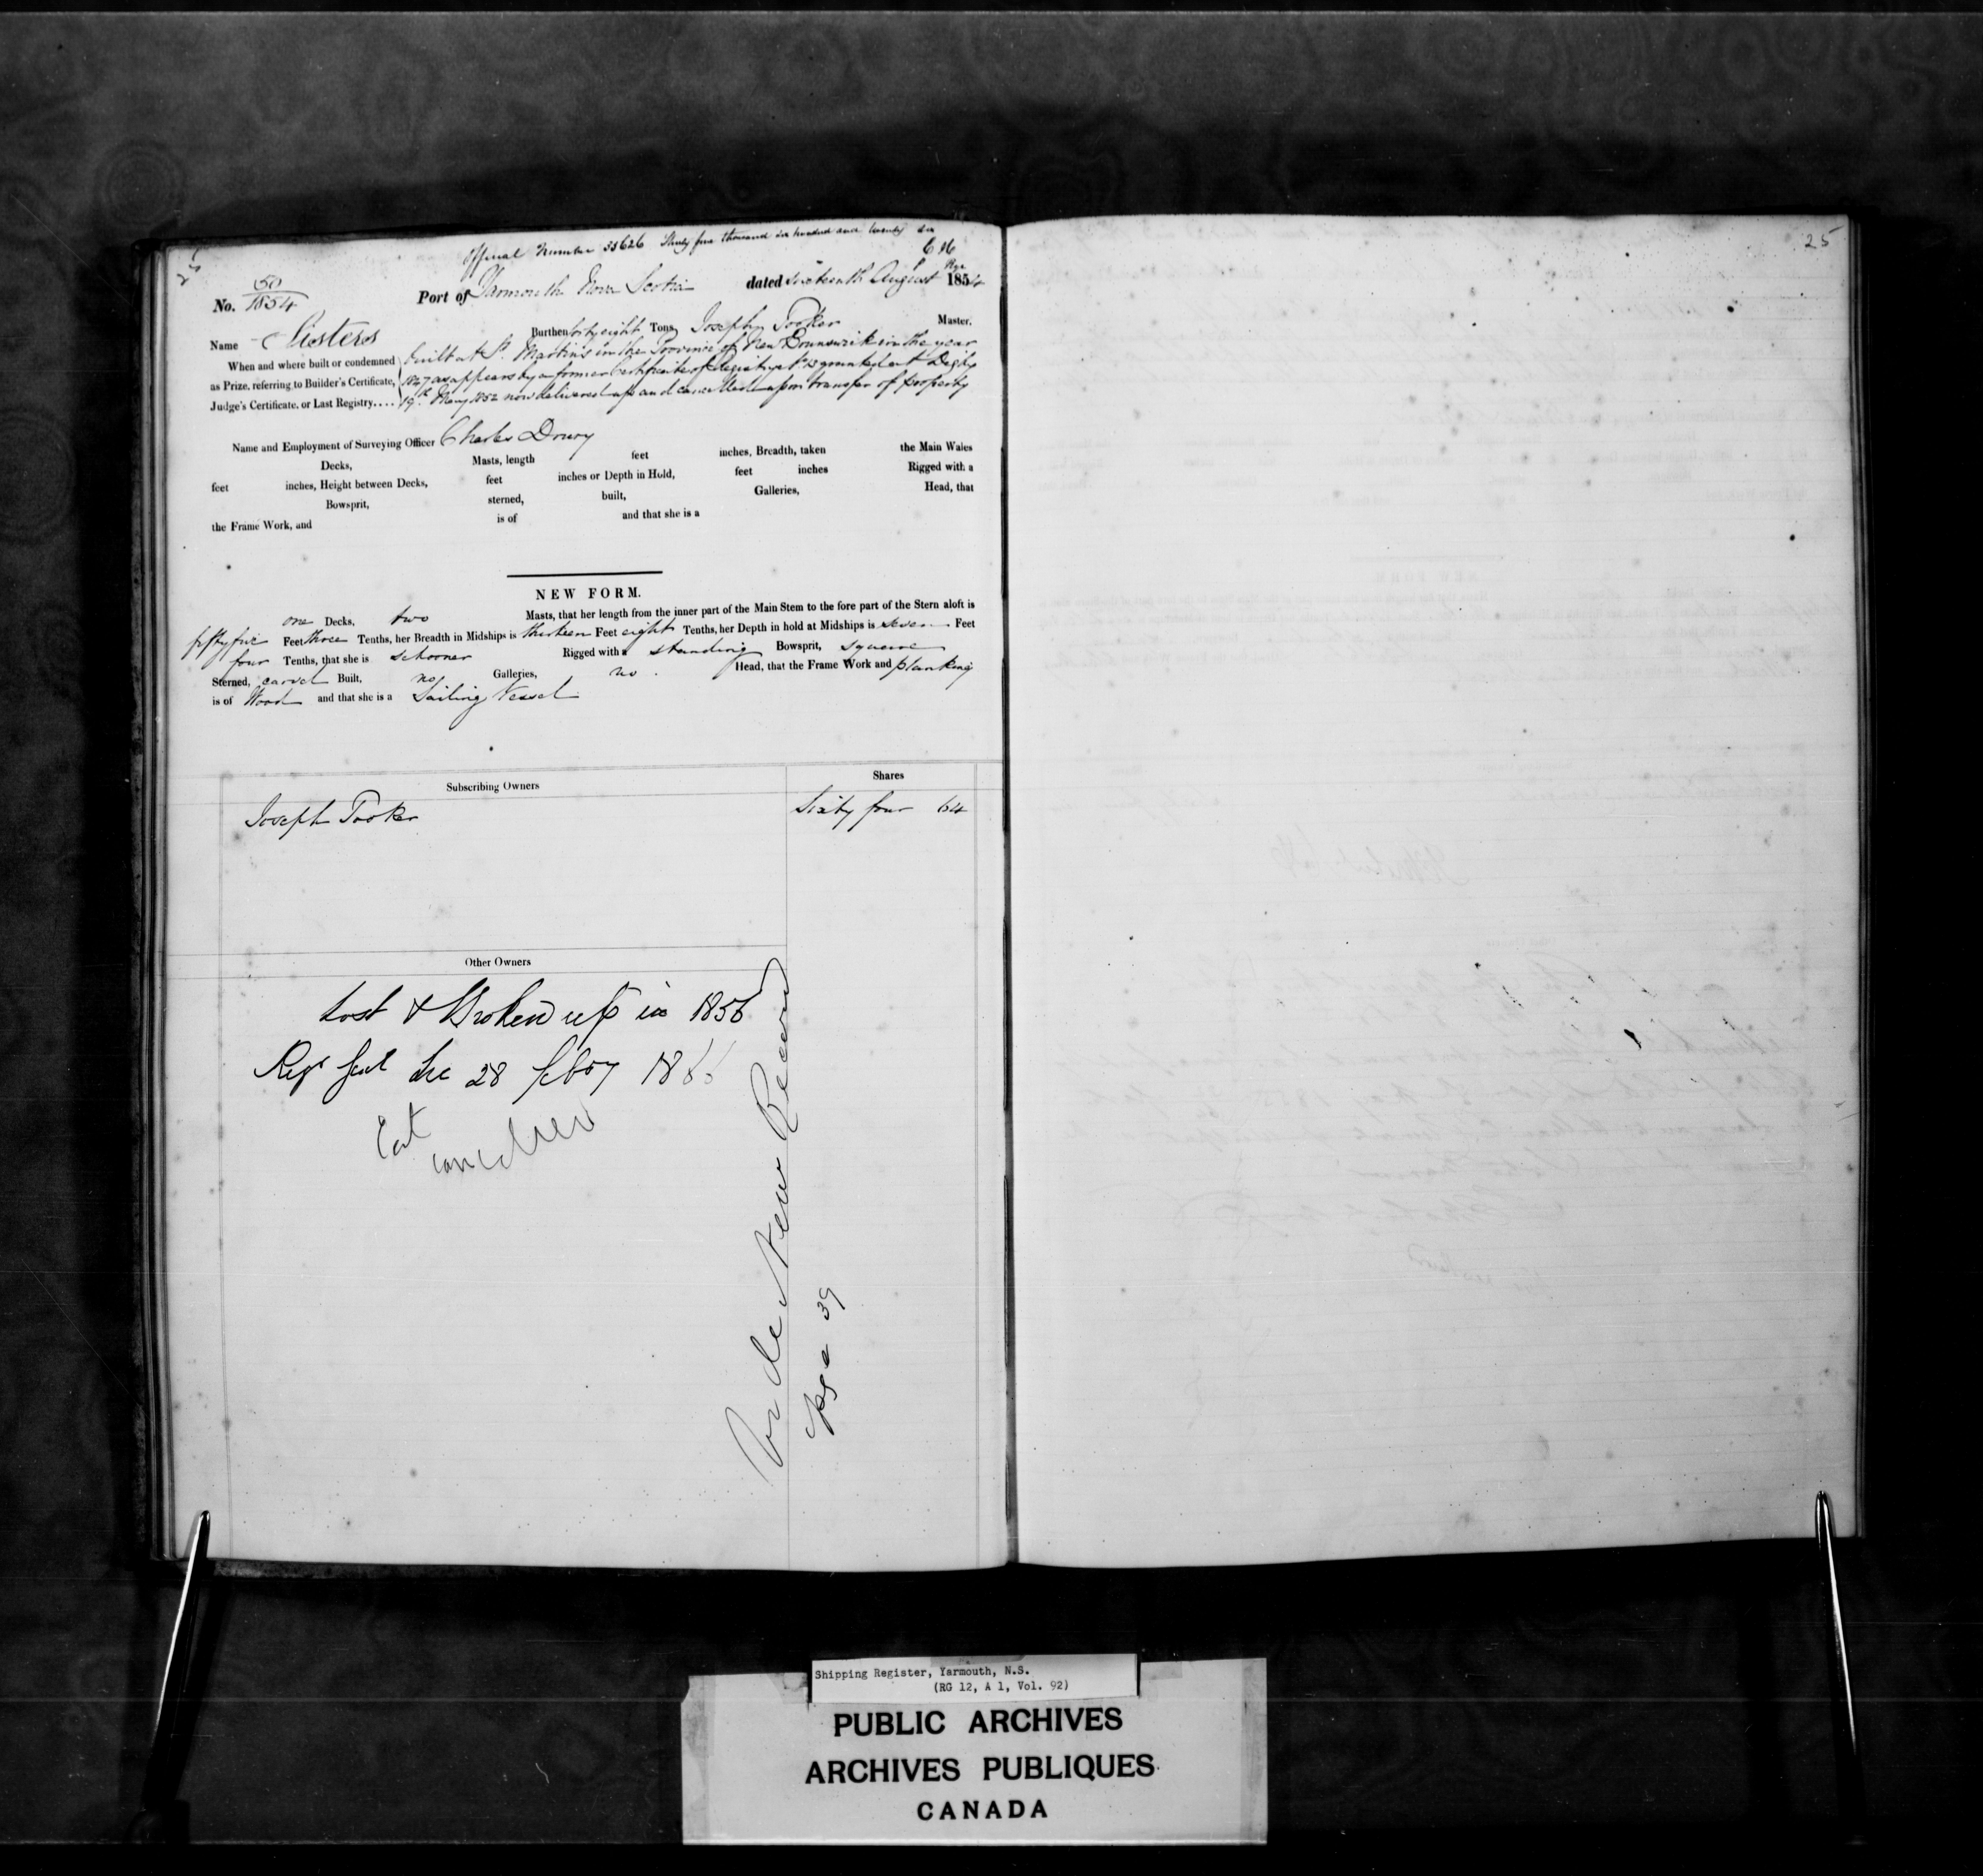 Official Number 35626 Thirty five thousand six hundred and twenty six
25
No. 50/1854 Port of Yarmouth Nova Scotia dated Sixteenth August 1854
Name Sisters Burthen forty eight Tons Joseph Tooker Master.
When and where built or condemned as Prize, referring to Builder's Certificate, Judge's Certificate, or Last Registry....
built at St. Martins in the Province of New Brunswick in the year
1847 as appears by a former Certificate of Registry granted at Digby
19th May 1852 now delivered up and cancelled upon transfer of property
Name and Employment of Surveying Officer Charles Drury
Decks, Masts, length feet inches, Breadth, taken the Main Wales
feet inches, Height between Decks, feet inches or Depth in Hold, feet inches Rigged with a
Bowsprit, sterned, built, Galleries, Head, that
the Frame Work, and is of and that she is a
NEW FORM.
one Decks, two Masts, that her length from the inner part of the Main Stem to the fore part of the Stern aloft is
fifty five Feet three Tenths, her Breadth in Midships is thirteen Feet eight Tenths, her Depth in hold at Midships is seven Feet
four Tenths, that she is schooner Rigged with a standing Bowsprit, square
Sterned, carvel Built, no Galleries, no Head, that the Frame Work and planking
is of Wood and that she is a Sailing Vessel
Subscribing Owners Shares
Joseph Tooker Sixty four 64
Other Owners
Lost & Broken up in 1856
28 1866
Cert cancelled
Vide New Record
page 39
25
Shipping Register, Yarmouth, N.S.
(RG 12, A 1, Vol. 92)
PUBLIC ARCHIVES
ARCHIVES PUBLIQUES
CANADA